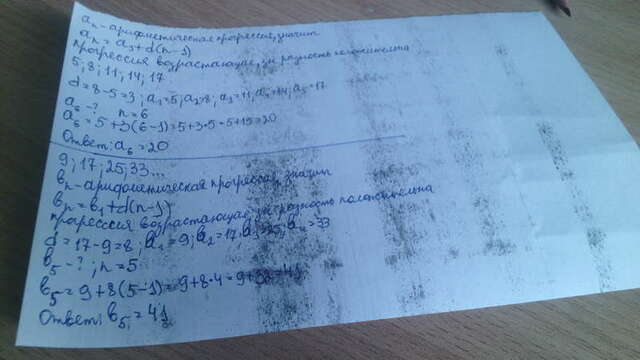 aₙ - арифметическая прогрессия, значит
aₙ = a₁ + d(n-1)
прогрессия возрастающая, зн. разность положительна
5; 8; 11; 14; 17
d = 8-5=3; a₁=5; a₂=8; a₃=11; a₄=14; a₅=17
a₆ - ? n = 6
a₆ = 5+3(6-1)=5+3·5=5+15=20
Ответ: a₆ = 20
9; 17; 25; 33...
bₙ - арифметическая прогрессия, значит
bₙ = b₁ + d(n-1)
прогрессия возрастающая, зн. разность положительна
d = 17-9=8; b₁ = 9; b₂ = 17; b₃=25; b₄ = 33
b₅ - ?; n = 5
b₅ = 9+8(5-1)=9+8·4=9+32=41
Ответ: b₅ = 41